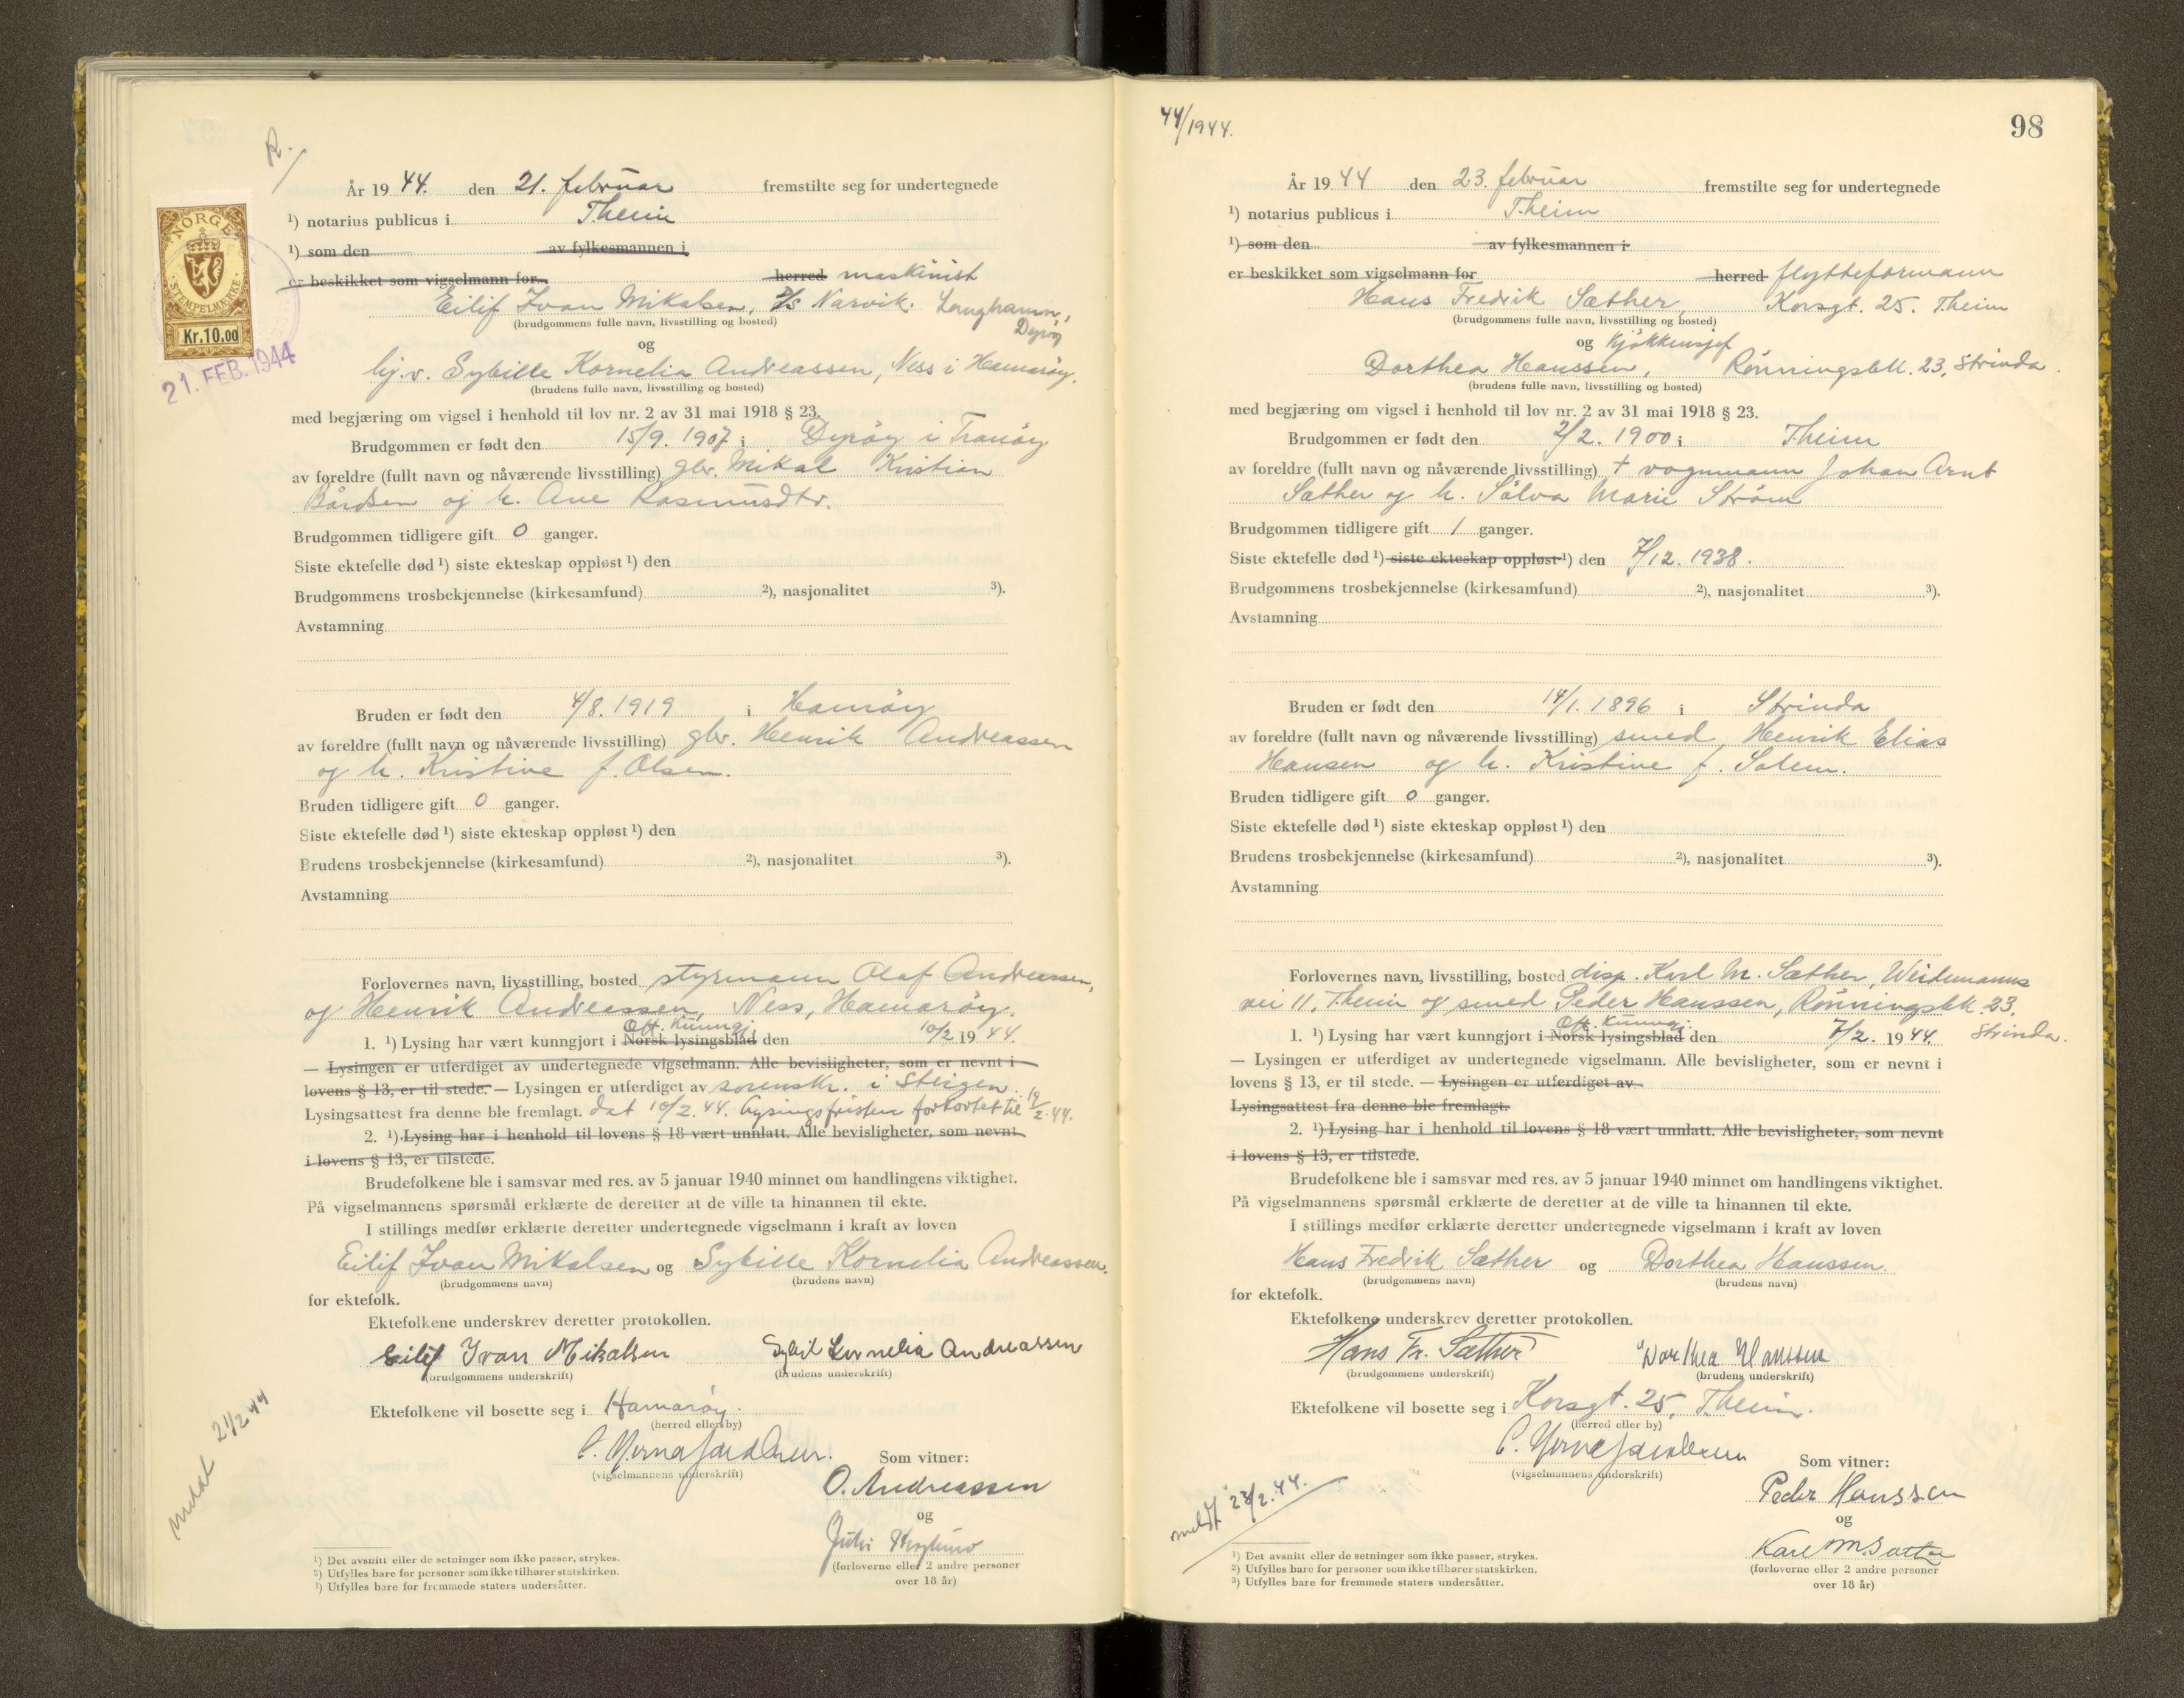 R.
År 19 44. den 21. februar fremstilte seg for undertegnede
¹) notarius publicus i T.heim
¹) som den av fylkesmannen i
er beskikket som vigselmann for herred maskinist
Eilif Ivan Mikalsen, D/S Narvik. Langhamn, Dyrøy
(brudgommens fulle navn, livsstilling og bosted)
og
hj.v. Sybille Kornelia Andreassen, Ness i Hamarøy.
(brudens fulle navn, livsstilling og bosted)
med begjæring om vigsel i henhold til lov nr. 2 av 31 mai 1918 § 23.
Brudgommen er født den 15/9. 1907 i Dyröy i Tranöy
av foreldre (fullt navn og nåværende livsstilling) gbr. Mikal Kristian
Bårdsen og h. Ane Rasmusdtr.
Brudgommen tidligere gift 0 ganger.
Siste ektefelle død ¹) siste ekteskap oppløst ¹) den
Brudgommens trosbekjennelse (kirkesamfund) ²), nasjonalitet ³).
Avstamning
Bruden er født den 4/8. 1919 i Hamöy
av foreldre (fullt navn og nåværende livsstilling) gbr. Henrik Andreassen
og h. Kristine f. Olsen.
Bruden tidligere gift 0 ganger.
Siste ektefelle død ¹) siste ekteskap oppløst ¹) den
Brudens trosbekjennelse (kirkesamfund) ²), nasjonalitet ³).
Avstamning
Forlovernes navn, livsstilling, bosted styrmann Olaf Andreassen,
og Henrik Andreassen, Ness, Hamaröy.
Off. kunngj.
1. ¹) Lysing har vært kunngjort i Norsk lysingsblad den 10/2 19 44.
— Lysingen er utferdiget av undertegnede vigselmann. Alle bevisligheter, som er nevnt i
lovens § 13, er til stede. — Lysingen er utferdiget av sorenskr. i Steigen.
Lysingsattest fra denne ble fremlagt. dat 10/2. 44. Lysingsfristen forkortet til 19/2. 44.
2. ¹) Lysing har i henhold til lovens § 18 vært unnlatt. Alle bevisligheter, som nevnt
i lovens § 13, er tilstede.
Brudefolkene ble i samsvar med res. av 5 januar 1940 minnet om handlingens viktighet.
På vigselmannens spørsmål erklærte de deretter at de ville ta hinannen til ekte.
I stillings medfør erklærte deretter undertegnede vigselmann i kraft av loven
Eilif Ivan Mikalsen og Sybille Kornelia Andreassen.
(brudgommens navn) (brudens navn)
for ektefolk.
Ektefolkene underskrev deretter protokollen.
Eilif Ivan Mikalsen Sybil Kornelia Andreassen
(brudgommens underskrift) (brudens underskrift)
Ektefolkene vil bosette seg i Hamaröy.
(herred eller by)
(vigselmannens underskrift) Som vitner:
O. Andreassen
og
(forloverne eller 2 andre personer
over 18 år)
meldt 21/2 44
¹) Det avsnitt eller de setninger som ikke passer, strykes.
²) Utfylles bare for personer som ikke tilhører statskirken.
³) Utfylles bare for fremmede staters undersåtter.
NORGE
STEMPELMÆRKE
Kr. 10,00
21. FEB. 1944
44/1944.
98
År 19 44 den 23. februar fremstilte seg for undertegnede
¹) notarius publicus i T.heim
¹) som den av fylkesmannen i
er beskikket som vigselmann for herred flytteformann
Hans Fredrik Sæther, Korsgt. 25. T.heim
(brudgommens fulle navn, livsstilling og bosted)
og kjökkensjef
Dorthea Hanssen, Rönningsbk. 23, Strinda.
(brudens fulle navn, livsstilling og bosted)
med begjæring om vigsel i henhold til lov nr. 2 av 31 mai 1918 § 23.
Brudgommen er født den 2/2. 1900 i T.heim
av foreldre (fullt navn og nåværende livsstilling) † vognmann Johan Arnt
Sæther og h. Sölva Marie Ström
Brudgommen tidligere gift 1 ganger.
Siste ektefelle død ¹) siste ekteskap oppløst ¹) den 7/12. 1938.
Brudgommens trosbekjennelse (kirkesamfund) ²), nasjonalitet ³).
Avstamning
Bruden er født den 14/1. 1896 i Strinda
av foreldre (fullt navn og nåværende livsstilling) smed Henrik Elias
Hansen og h. Kristine f. Solem.
Bruden tidligere gift 0 ganger.
Siste ektefelle død ¹) siste ekteskap oppløst ¹) den
Brudens trosbekjennelse (kirkesamfund) ²), nasjonalitet ³).
Avstamning
Forlovernes navn, livsstilling, bosted disp. Karl M. Sæther, Weidemanns
vei 11, T.heim og smed Peder Hanssen, Rönningsbk. 23, Strinda.
Off. kunngj.
1. ¹) Lysing har vært kunngjort i Norsk lysingsblad den 7/2. 19 44.
— Lysingen er utferdiget av undertegnede vigselmann. Alle bevisligheter, som er nevnt i
lovens § 13, er til stede. — Lysingen er utferdiget av
Lysingsattest fra denne ble fremlagt.
2. ¹) Lysing har i henhold til lovens § 18 vært unnlatt. Alle bevisligheter, som nevnt
i lovens § 13, er tilstede.
Brudefolkene ble i samsvar med res. av 5 januar 1940 minnet om handlingens viktighet.
På vigselmannens spørsmål erklærte de deretter at de ville ta hinannen til ekte.
I stillings medfør erklærte deretter undertegnede vigselmann i kraft av loven
Hans Fredrik Sæther og Dorthea Hanssen.
(brudgommens navn) (brudens navn)
for ektefolk.
Ektefolkene underskrev deretter protokollen.
Hans Fr. Sæther Dorthea Hanssen
(brudgommens underskrift) (brudens underskrift)
Ektefolkene vil bosette seg i Korsgt. 25, T.heim.
(herred eller by)
(vigselmannens underskrift) Som vitner:
Peder Hanssen
og
Karl M. Sæther
(forloverne eller 2 andre personer
over 18 år)
meldt 23/2. 44.
¹) Det avsnitt eller de setninger som ikke passer, strykes.
²) Utfylles bare for personer som ikke tilhører statskirken.
³) Utfylles bare for fremmede staters undersåtter.